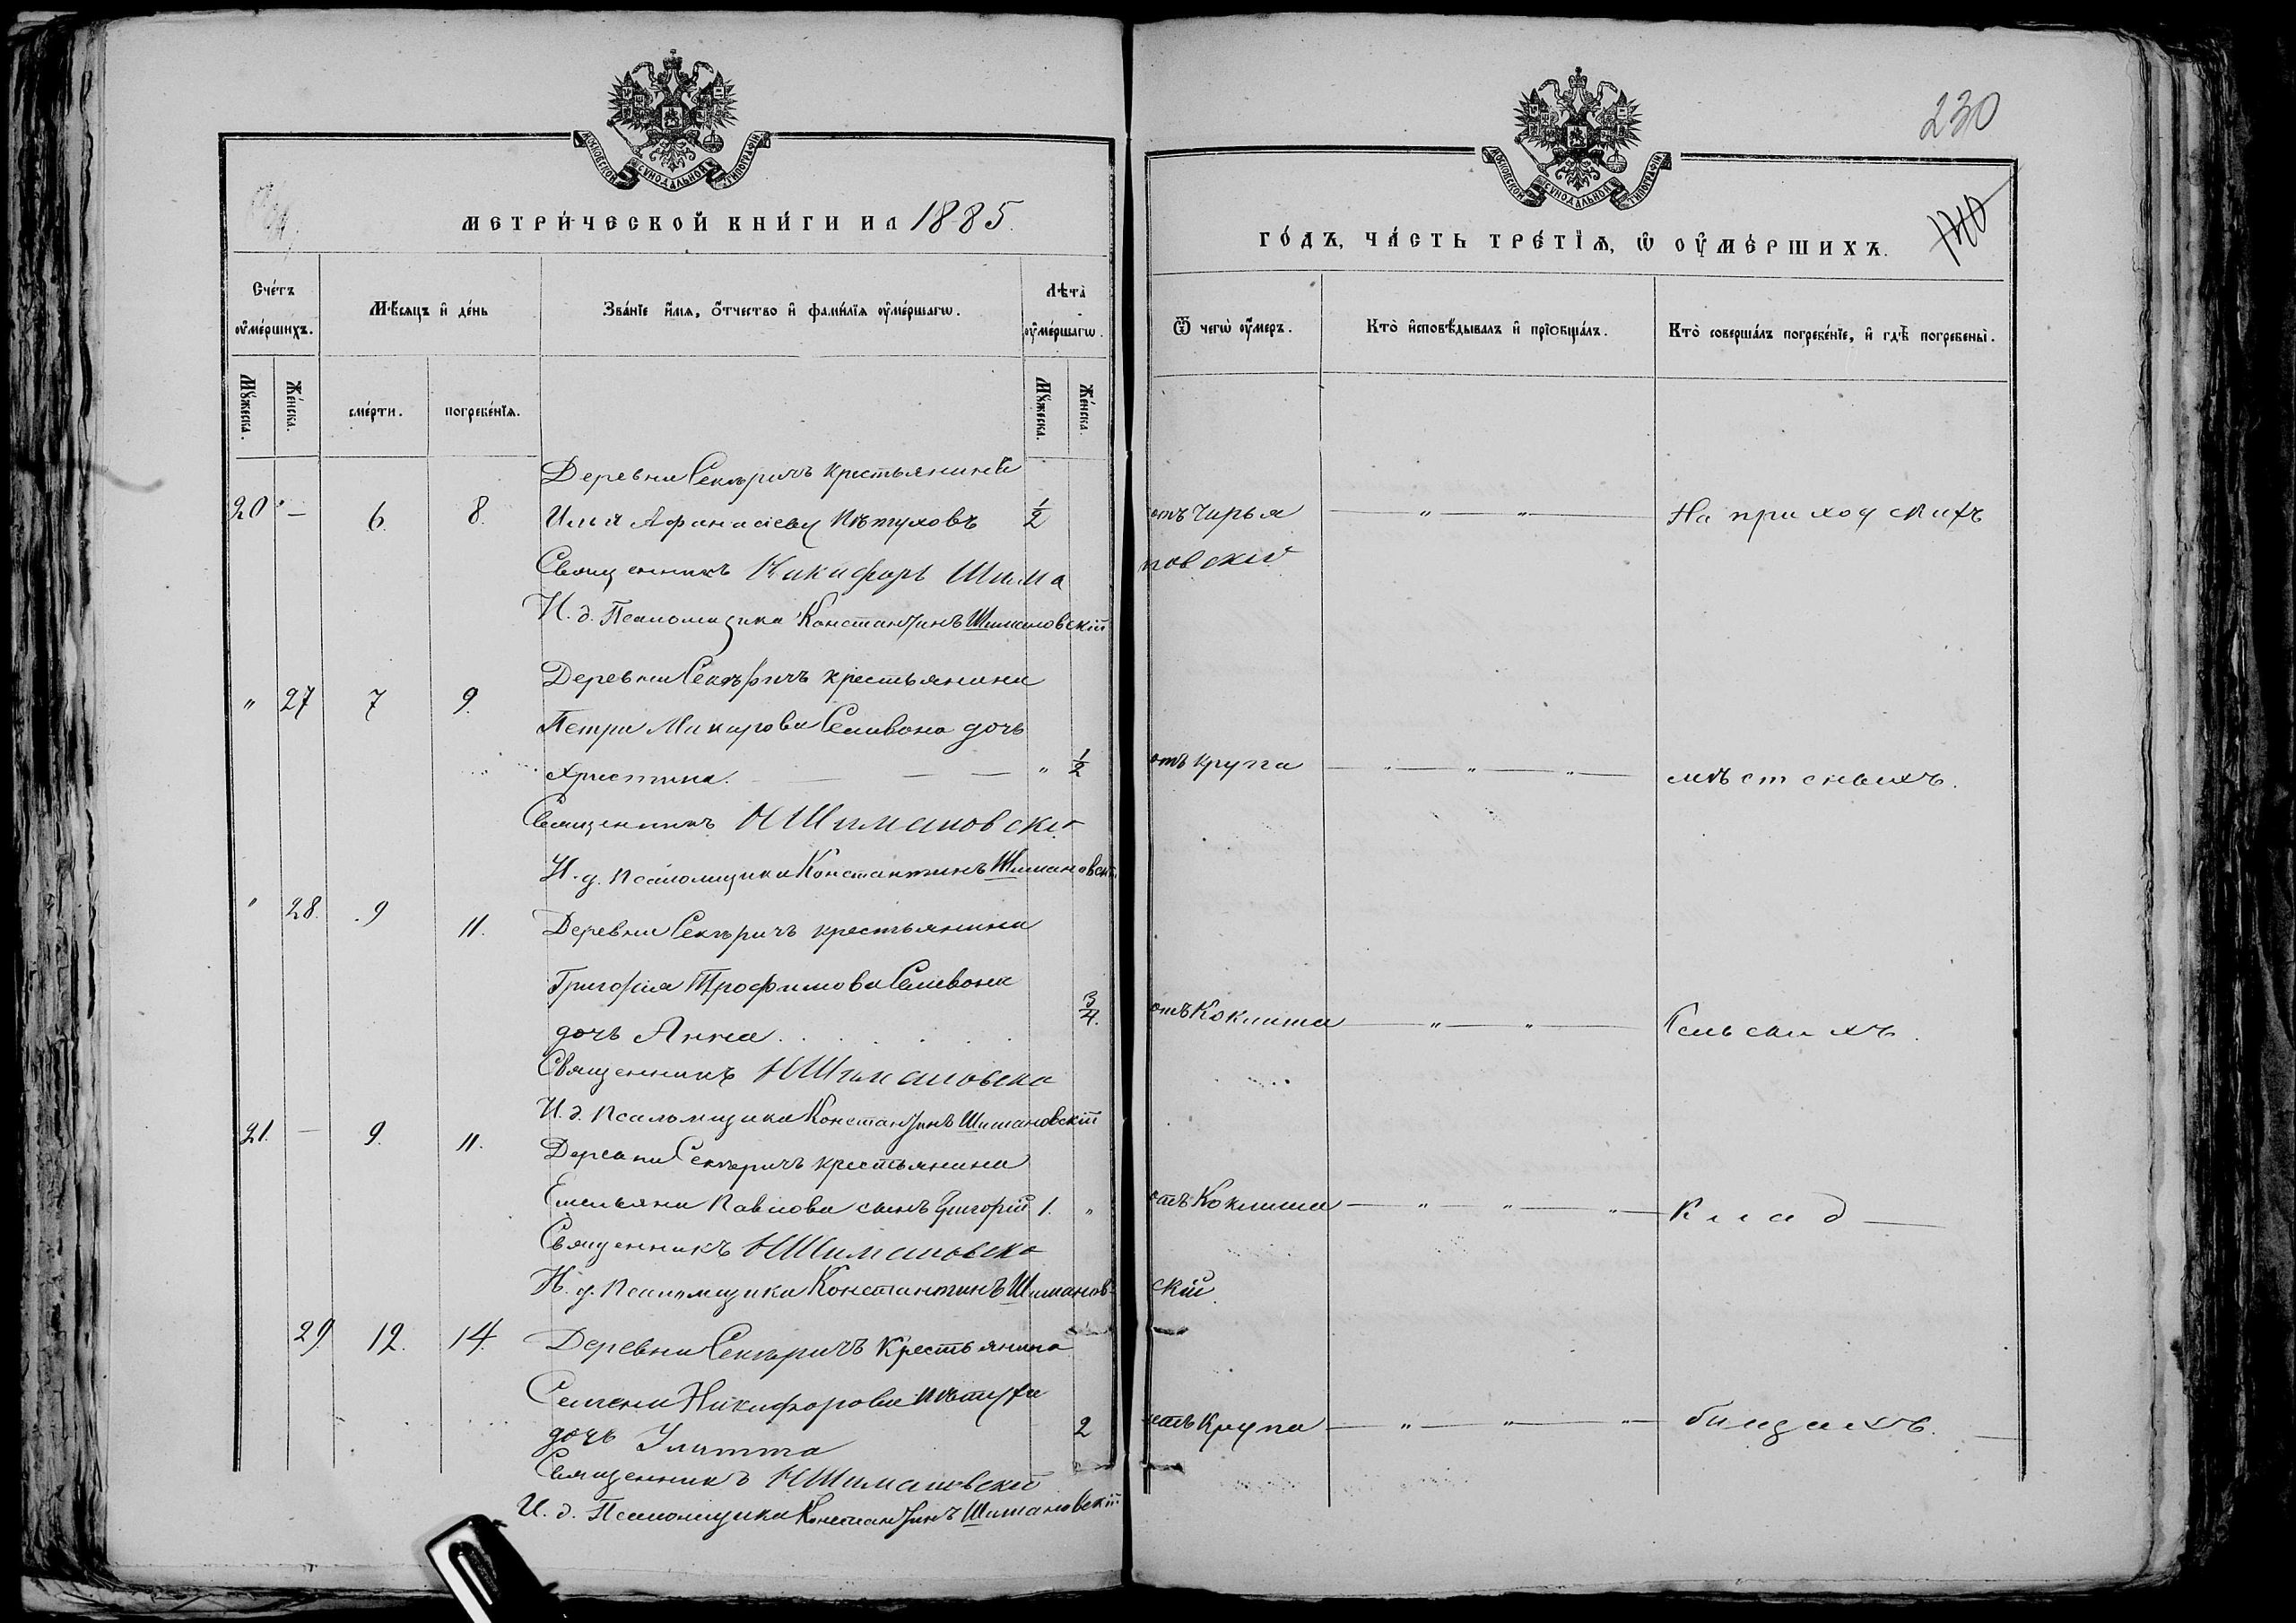 МОСКОВСКОЙ СѴНОДАЛЬНОЙ ТИПОГРАФІИ
МОСКОВСКОЙ СѴНОДАЛЬНОЙ ТИПОГРАФІИ
230
140
МЕТРИ́ЧЕСКОЙ КНИ́ГИ НА 1885.
ГО́ДЪ, ЧА́СТЬ ТРЕ́ТІѦ, Ѡ ОУ҆МЕ́РШИХЪ.
Сче́тъ оу҆ме́ршихъ.
Мѣ́сяцъ и҆ де́нь
Зва́нїе и҆́мѧ, ѻ҆́тчество и҆ фами́лїѧ оу҆ме́ршагѡ.
Лѣ́та̀ оу҆ме́ршагѡ.
Ѿ чегѡ̀ оу҆́меръ.
Кто̀ и҆сповѣ́дывалъ и҆ прїобща́лъ.
Кто̀ соверша́лъ погребе́нїе, и҆ гдѣ̀ погребены̀.
Мꙋ́жеска.
Же́нска.
сме́рти.
погребе́нїѧ.
Мꙋ́жеска.
Же́нска.
Деревни Секѣричъ крестьянинъ
20 — 6. 8. Илья Афанасіевъ Пѣтуховъ ½ отъ Чирья — " — " — На приходскихъ
Священникъ Никифоръ Шимановскій
И. д. Псаломщика Константинъ Шимановскій
Деревни Секѣричъ крестьянина
" 27 7 9. Петра Макарова Селивона дочь
Христина. — — — " ½ отъ крупа — " — " — " — мѣстныхъ.
Священникъ Н Шимановскій
И. д. Псаломщика Константинъ Шимановскій
" 28. 9 11. Деревни Секѣричъ крестьянина
Григорія Трофимова Селивона
дочь Анна. ¾. отъ Коклюша — " — " — Сельскихъ.
Священникъ Н Шимановскій
И. д. Псаломщика Константинъ Шимановскій
21. — 9. 11. Деревни Секѣричъ крестьянина
Емельяна Павлова сынъ Григорій 1. " отъ Коклюша — " — " — " — Клад —
Священникъ Н Шимановскій
И. д. Псаломщика Константинъ Шимановскій.
29. 12. 14. Деревни Секѣричъ Крестьянина
Семена Никифорова Пѣтуха
дочь Улитта 2 отъ Крупа — " — " — " — бищахъ.
Священникъ Н Шимановскій
И. д. Псаломщика Константинъ Шимановскій